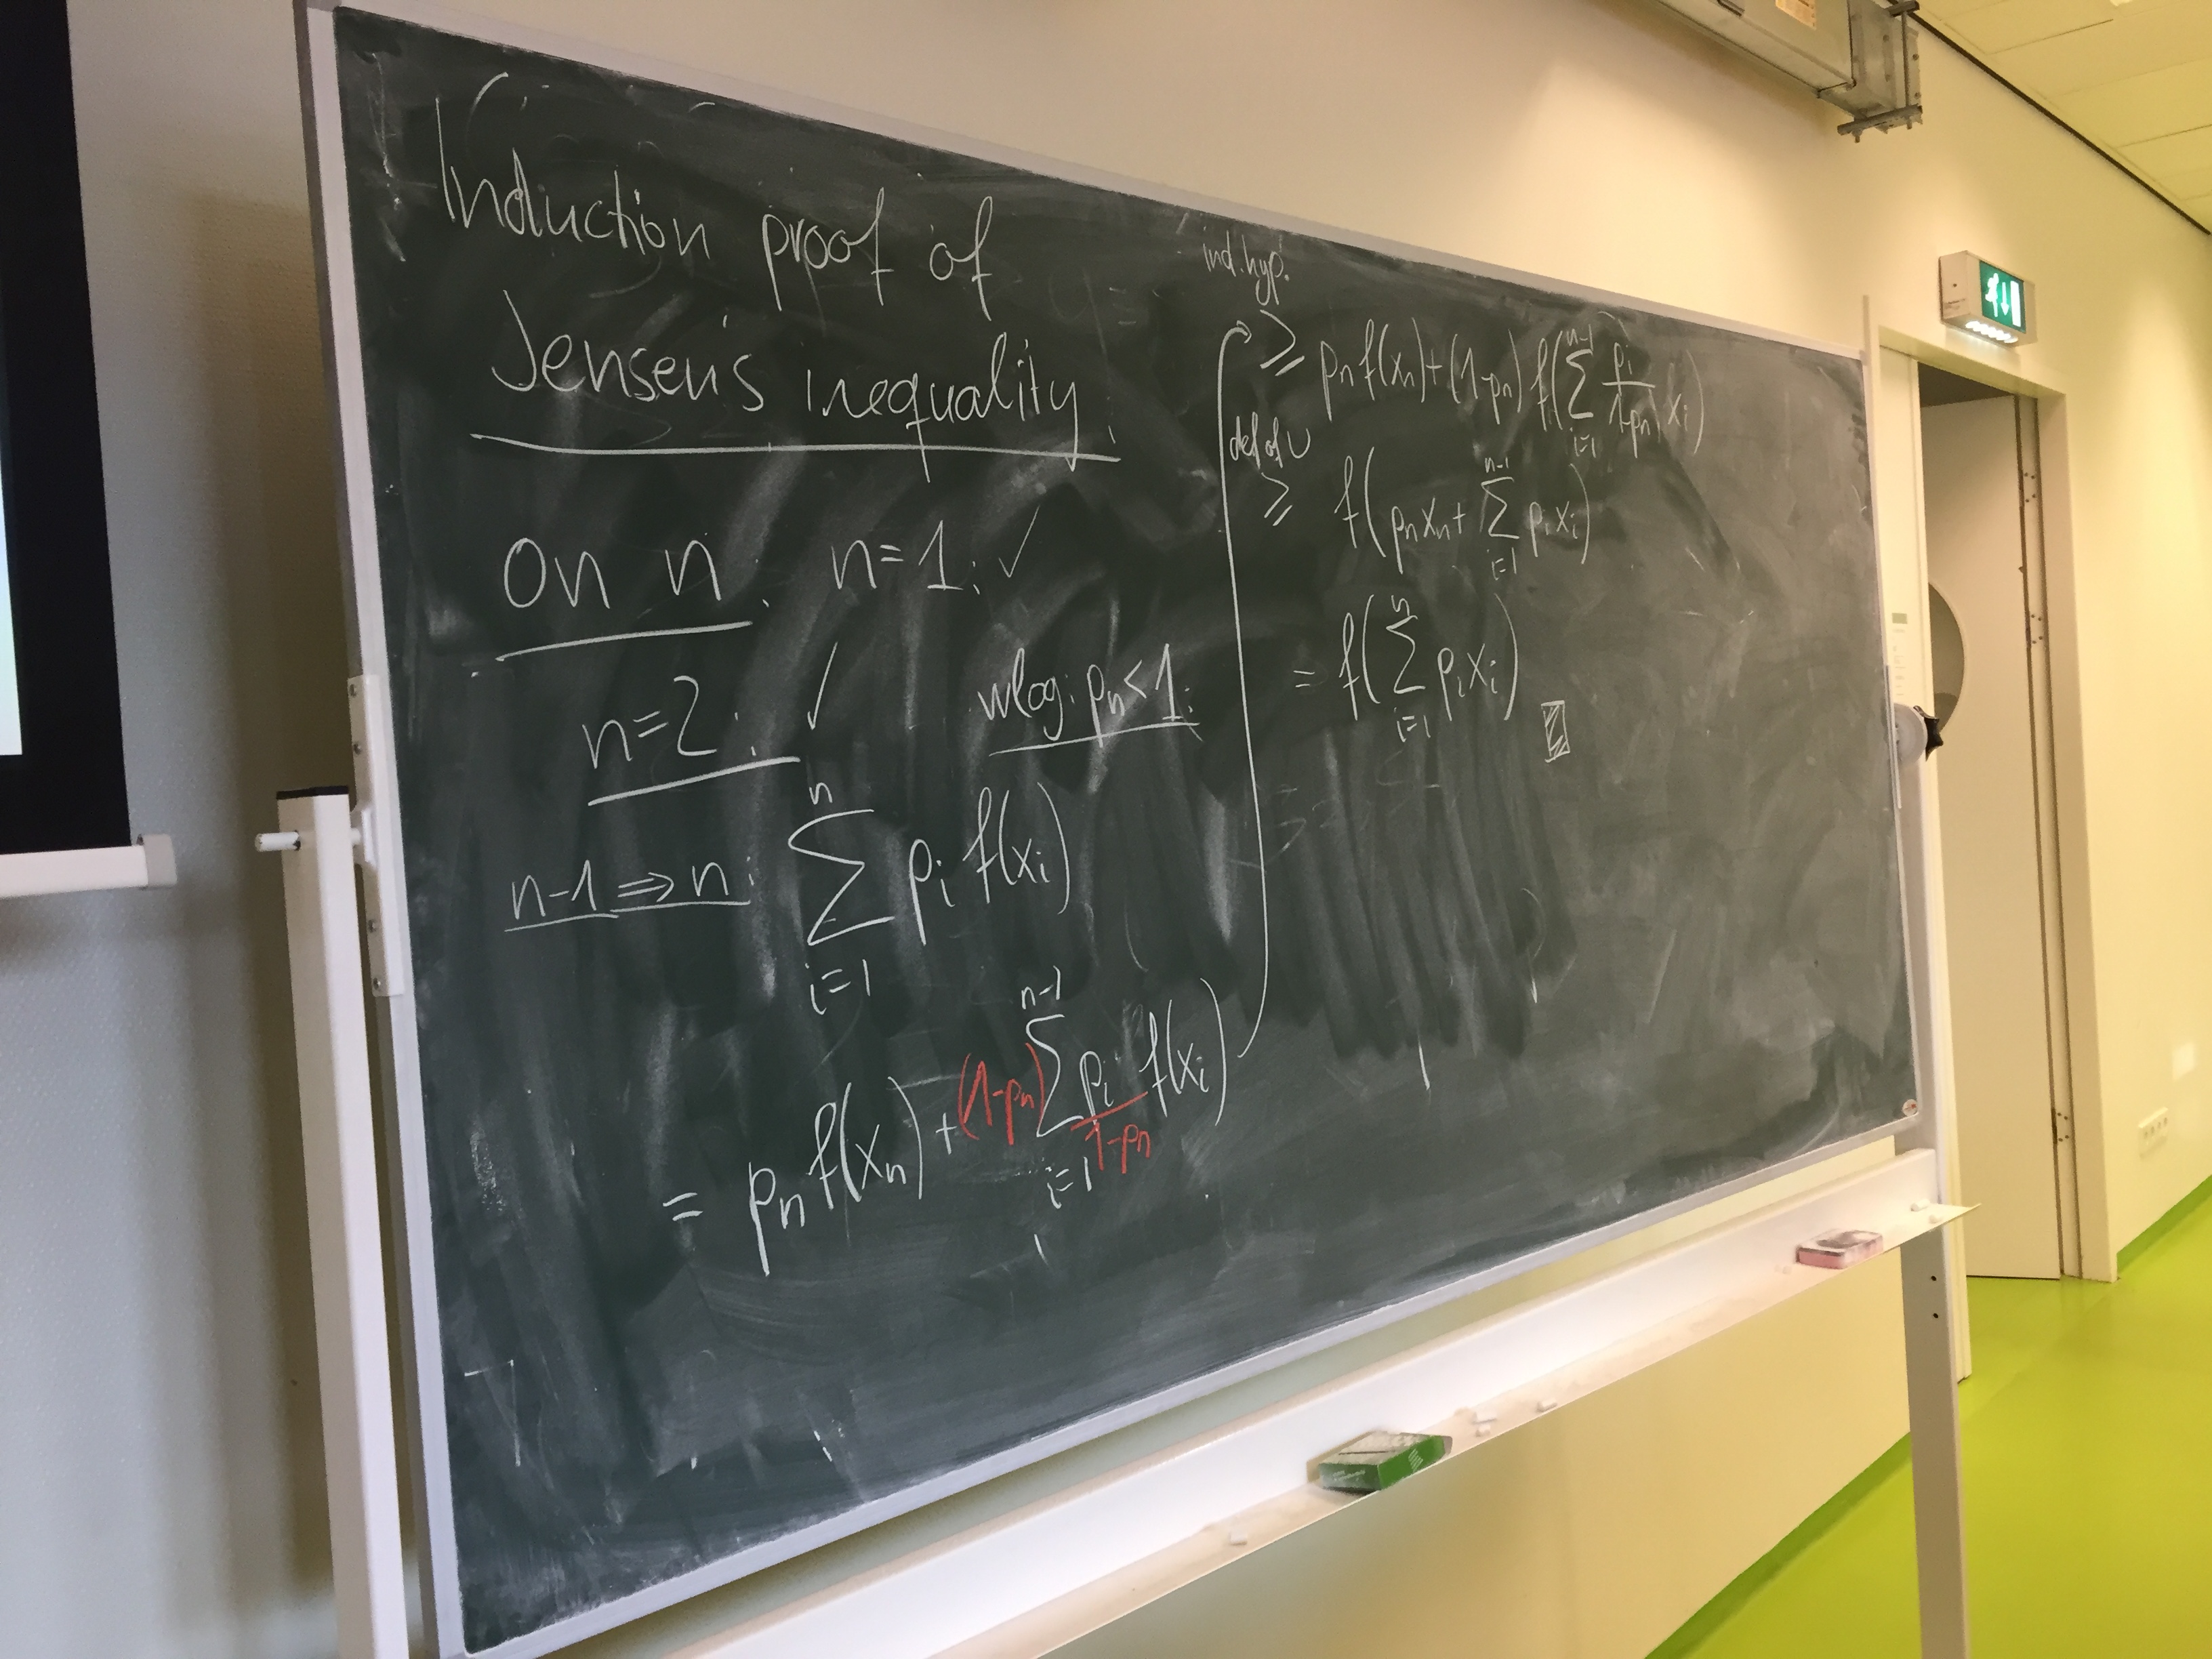 Induction proof of
Jensen's inequality
On n: n=1: ✓
n=2: ✓
wlog: pₙ<1:
n-1 ⇒ n: ∑_{i=1}^{n} pᵢ f(xᵢ)
= pₙ f(xₙ) + (1-pₙ) ∑_{i=1}^{n-1} pᵢ/(1-pₙ) f(xᵢ)
ind. hyp.
≥ pₙ f(xₙ) + (1-pₙ) f(∑_{i=1}^{n-1} pᵢ/(1-pₙ) xᵢ)
def of ∪
≥ f(pₙxₙ + ∑_{i=1}^{n-1} pᵢxᵢ)
= f(∑_{i=1}^{n} pᵢxᵢ)